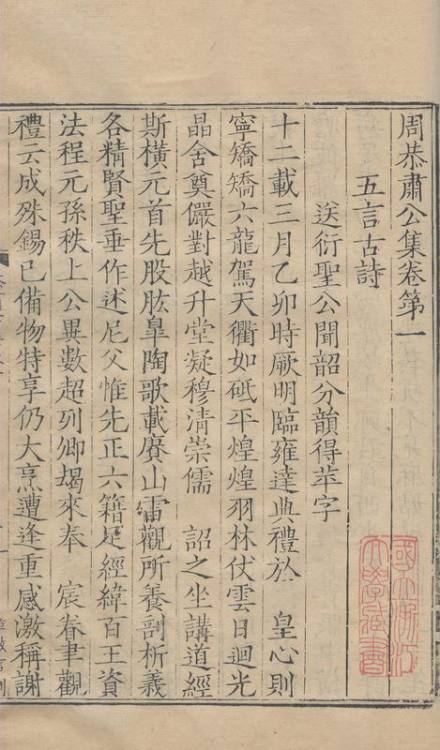 周恭肅公集卷第一
五言古詩
送衍聖公聞韶分韻得苹字
十二載三月乙卯時厥明臨雍達典禮於 皇心則
寧矯矯六龍駕天衢如砥平煌煌羽林伏雲日迴光
晶舍奠儼對越升堂凝穆清崇儒 詔之坐講道經
斯橫元首先股肱臯陶歌載賡山雷觀所養剖析義
各精賢聖垂作述尼父惟先正六籍是經緯百王資
法程元孫秩上公異數超列卿朅來奉 宸春聿觀
禮云成殊錫已備物特享仍大烹遭逢重感激稱謝
國立浙江
大學藏書